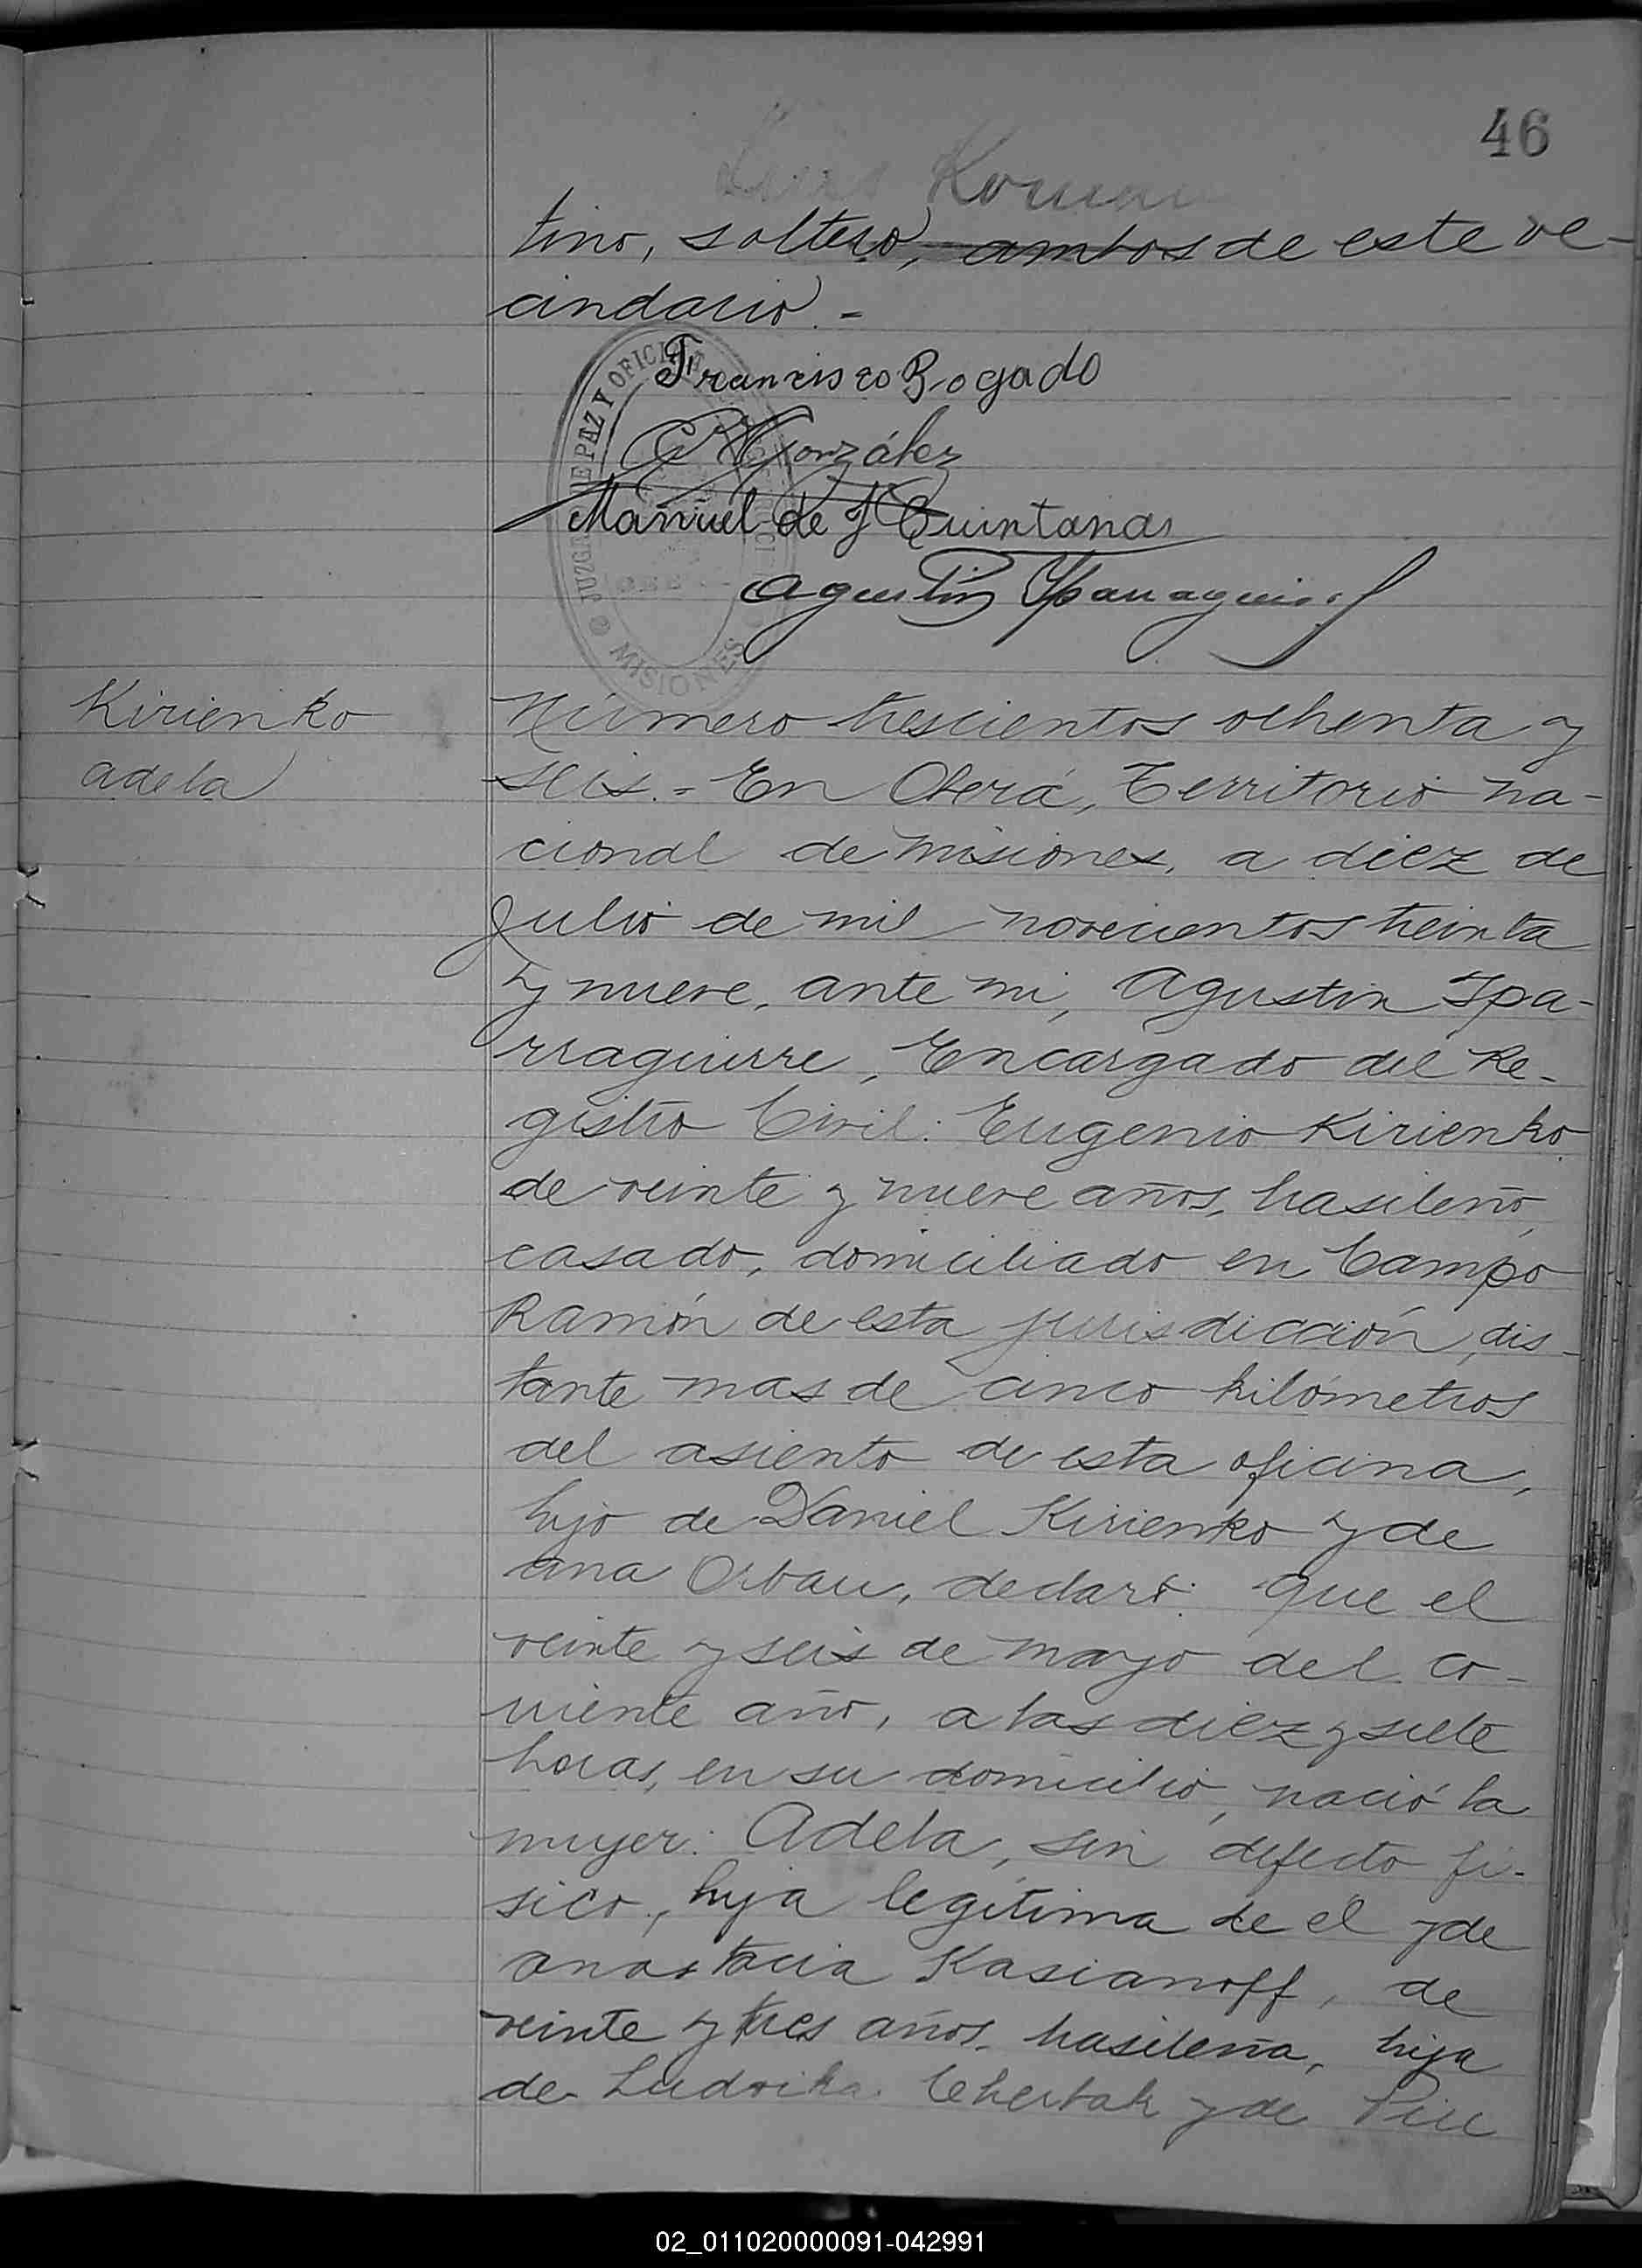 46
tino, soltero, ambos de este ve-
cindario.-
Francisco Bogado
González
Manuel de J Quintana
Agustin Yparraguirre
JUZGADO DE PAZ Y OFICINA
MISIONES
Kirienko
Adela
Número trescientos ochenta y
seis.- En Oberá, Territorio Na-
cional de Misiones, a diez de
Julio de mil novecientos treinta
y nueve, ante mi, Agustin Ipa-
rraguirre, Encargado del Re-
gistro Civil: Eugenio Kirienko
de veinte y nueve años, brasileño,
casado, domiciliado en Campo
Ramón de esta jurisdicción, dis-
tante mas de cinco kilómetros
del asiento de esta oficina,
hijo de Daniel Kirienko y de
Ana, declaró: Que el
veinte y seis de mayo del co-
rriente año, a las diez y siete
horas, en su domicilio, nació la
mujer: Adela, sin defecto fi-
sico, hija legítima de el y de
Anastacia Kasianoff, de
veinte y tres años, brasileña, hija
de Ludvika y de
02_011020000091-042991